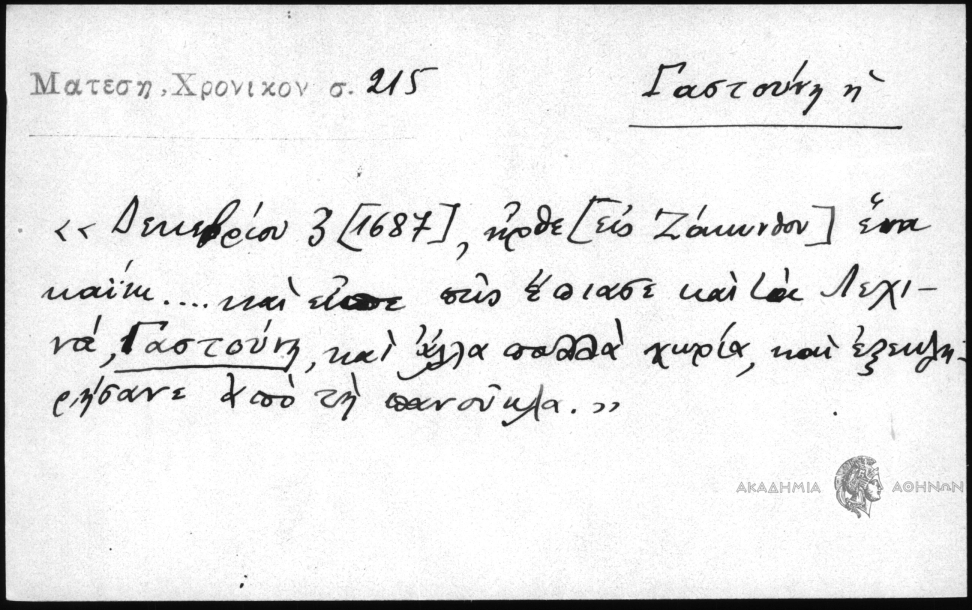 Ματεση, Χρονικον σ. 215
Γαστούνη ἡ
«Δεκεβρίου 3 [1687], ἦρθε [εἰς Ζάκυνθον] ἕνα
καΐκι .... καὶ εἶπε πῶς ἔπιασε καὶ τὰ Λεχι-
νά, Γαστούνη, καὶ ἄλλα πολλὰ χωρία, καὶ ἐξεκλη-
ρήσανε ἀπὸ τὴ πανοῦκλα.»
ΑΚΑΔΗΜΙΑ ΑΘΗΝΩΝ